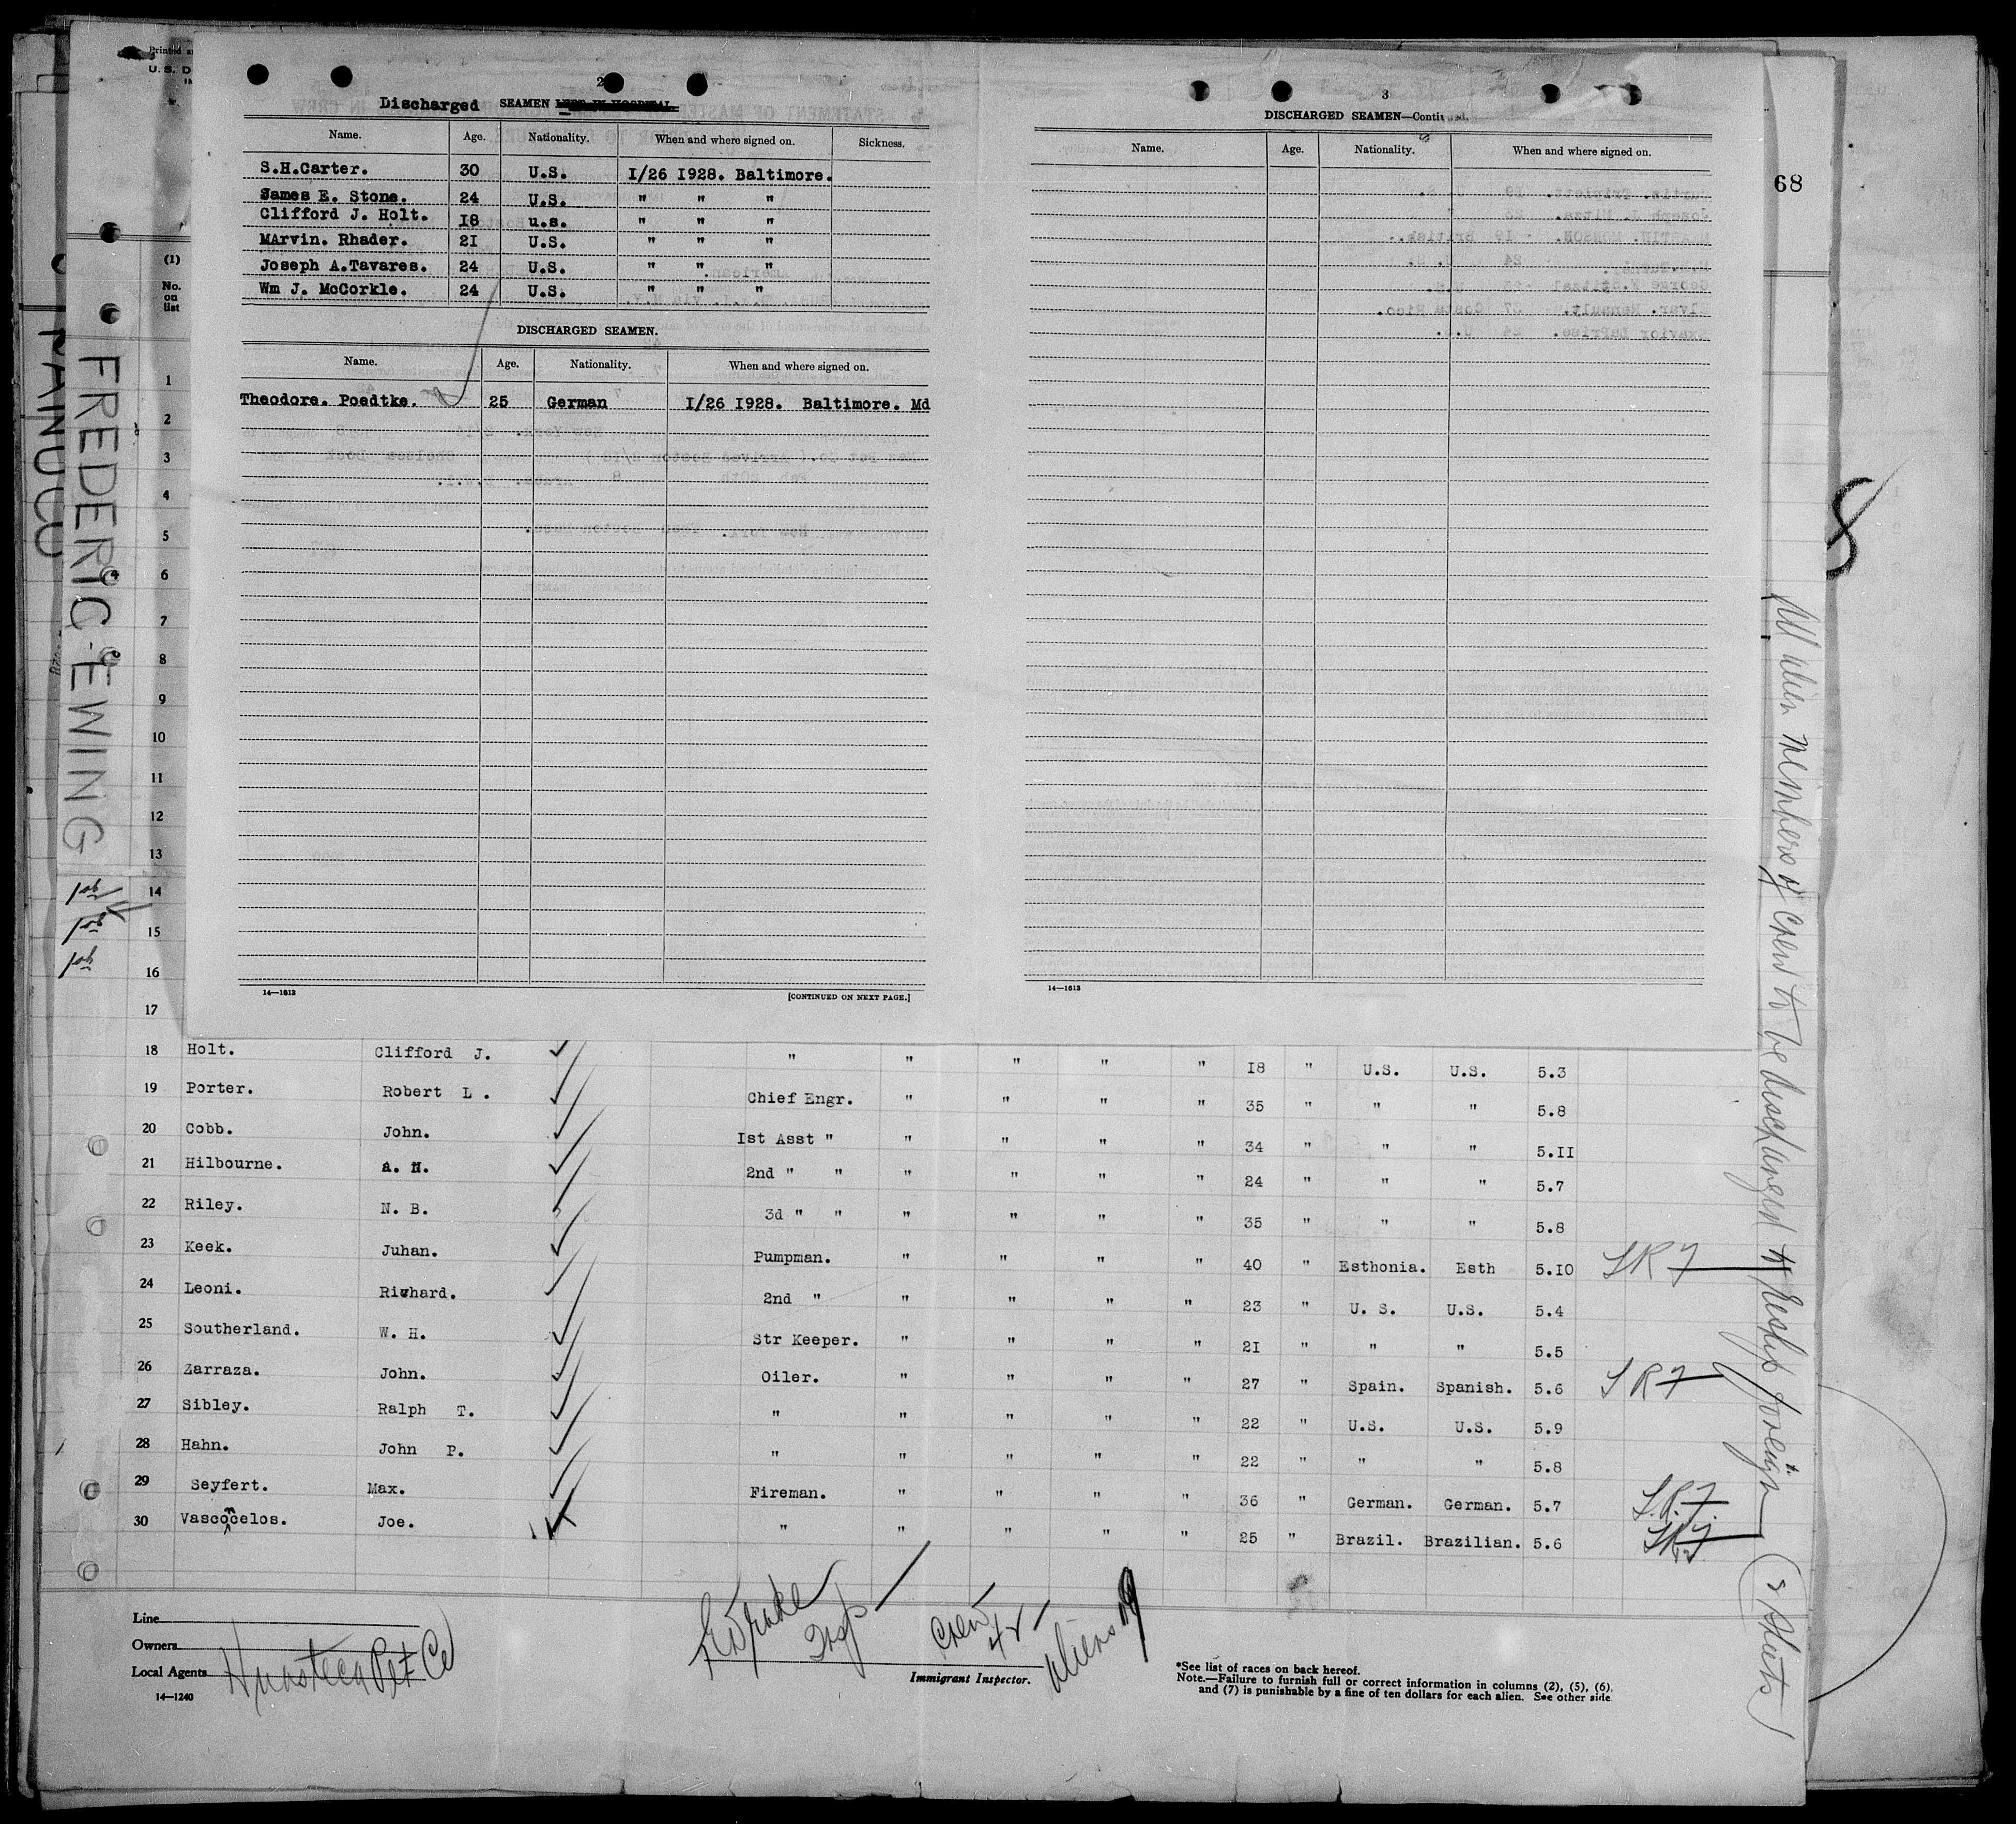 Printed
U. S. D
68
PANUCO
FREDERIC-EWING
2
Discharged SEAMEN LEFT IN HOSPITAL.
Name. Age. Nationality. When and where signed on. Sickness.
S.H.Carter. 30 U.S. I/26 I928. Baltimore.
James E. Stone. 24 U.S. " " "
Clifford J. Holt. I8 u.s. " " "
MArvin. Rhader. 2I U.S. " " "
Joseph A.Tavares. 24 U.S. " " "
Wm J. McCorkle. 24 U.S. " " "
DISCHARGED SEAMEN.
Name. Age. Nationality. When and where signed on.
Theodore. Poedtke. 25 German I/26 I928. Baltimore. Md
14—1613 [CONTINUED ON NEXT PAGE.]
3
DISCHARGED SEAMEN—Continued.
Name. Age. Nationality. When and where signed on.
14—1613
(1)
No.
on
list
1
2
3
4
5
6
7
8
9
10
11
12
13
14
15
16
17
18 Holt. Clifford J. " " " " " I8 " U.S. U.S. 5.3
19 Porter. Robert L . Chief Engr. " " " " 35 " " " 5.8
20 Cobb. John. Ist Asst " " " " " 34 " " " 5.II
21 Hilbourne. A. H. 2nd " " " " " " 24 " " " 5.7
22 Riley. N. B. 3d " " " " " " 35 " " " 5.8
23 Keek. Juhan. Pumpman. " " " " 40 " Esthonia. Esth 5.I0 SR7
24 Leoni. Richard. 2nd " " " " " 23 " U. S. U.S. 5.4
25 Southerland. W. H. Str Keeper. " " " " 2I " " " 5.5
26 Zarraza. John. Oiler. " " " " 27 " Spain. Spanish. 5.6 SR7
27 Sibley. Ralph T. " " " " " 22 " U.S. U.S. 5.9
28 Hahn. John P. " " " " " 22 " " " 5.8
29 Seyfert. Max. Fireman. " " " " 36 " German. German. 5.7 S.R.7.
30 Vascocelos. Joe. " " " " " 25 " Brazil. Brazilian. 5.6 SR7
All alien members of crew to be discharged to reship foreign
2 sheets
8
Line
Owners
Local Agents Huasteca Pet Co
14—1240
Insp
Immigrant Inspector.
Crew 42
Aliens 19
*See list of races on back hereof.
Note.—Failure to furnish full or correct information in columns (2), (5), (6),
and (7) is punishable by a fine of ten dollars for each alien. See other side.